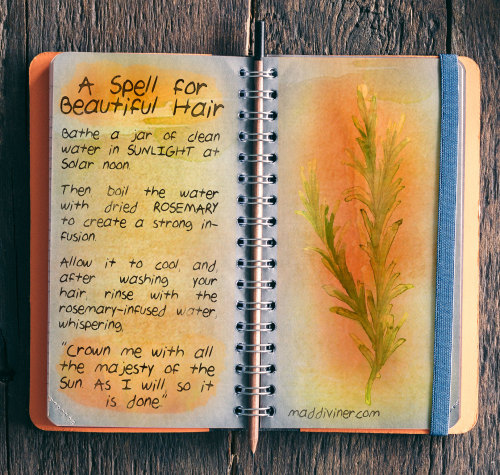 A Spell for
Beautiful Hair
Bathe a jar of clean
water in SUNLIGHT at
Solar noon.
Then boil the water
with dried ROSEMARY
to create a strong in-
fusion.
Allow it to cool and,
after washing your
hair, rinse with the
rosemary-infused water,
whispering,
"Crown me with all
the majesty of the
Sun. As I will, so it
is done."
maddiviner.com